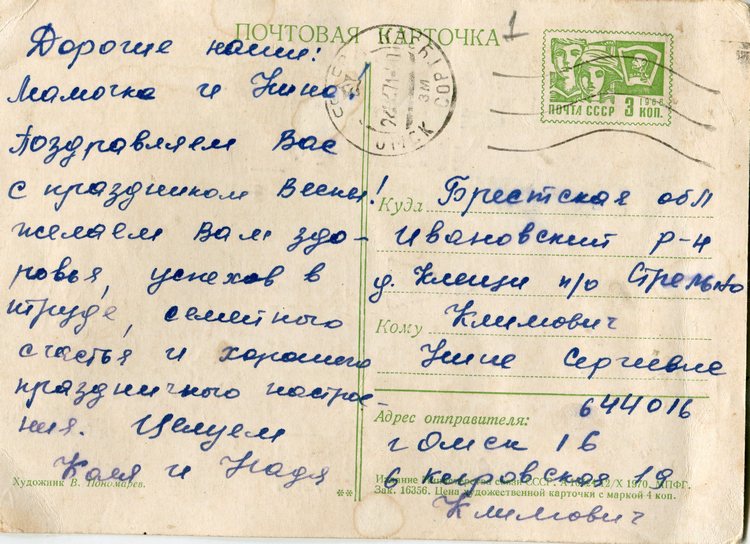 ПОЧТОВАЯ КАРТОЧКА
1
Дорогие наши:
Мамочка и Нина!
Поздравляем Вас
с праздником Весны!
желаем Вам здо-
ровья, успехов в
труде, семейного
счастья и хорошего
праздничного настрое-
ния. Целуем
Коля и Надя
Художник В. Пономарев.
**
ОМСК
ПОЧТА СССР 3 КОП.
1966
Куда Брестская обл
Ивановский р-н
д. Клещи п/о Стрельно
Кому Климович
Нине Сергеевне
Адрес отправителя: 644016
г Омск 16
6 кировская 19
Климович
Издание Министерства связи СССР. 1970. МПФГ.
Зак. 16356. Цена художественной карточки с маркой 4 коп.